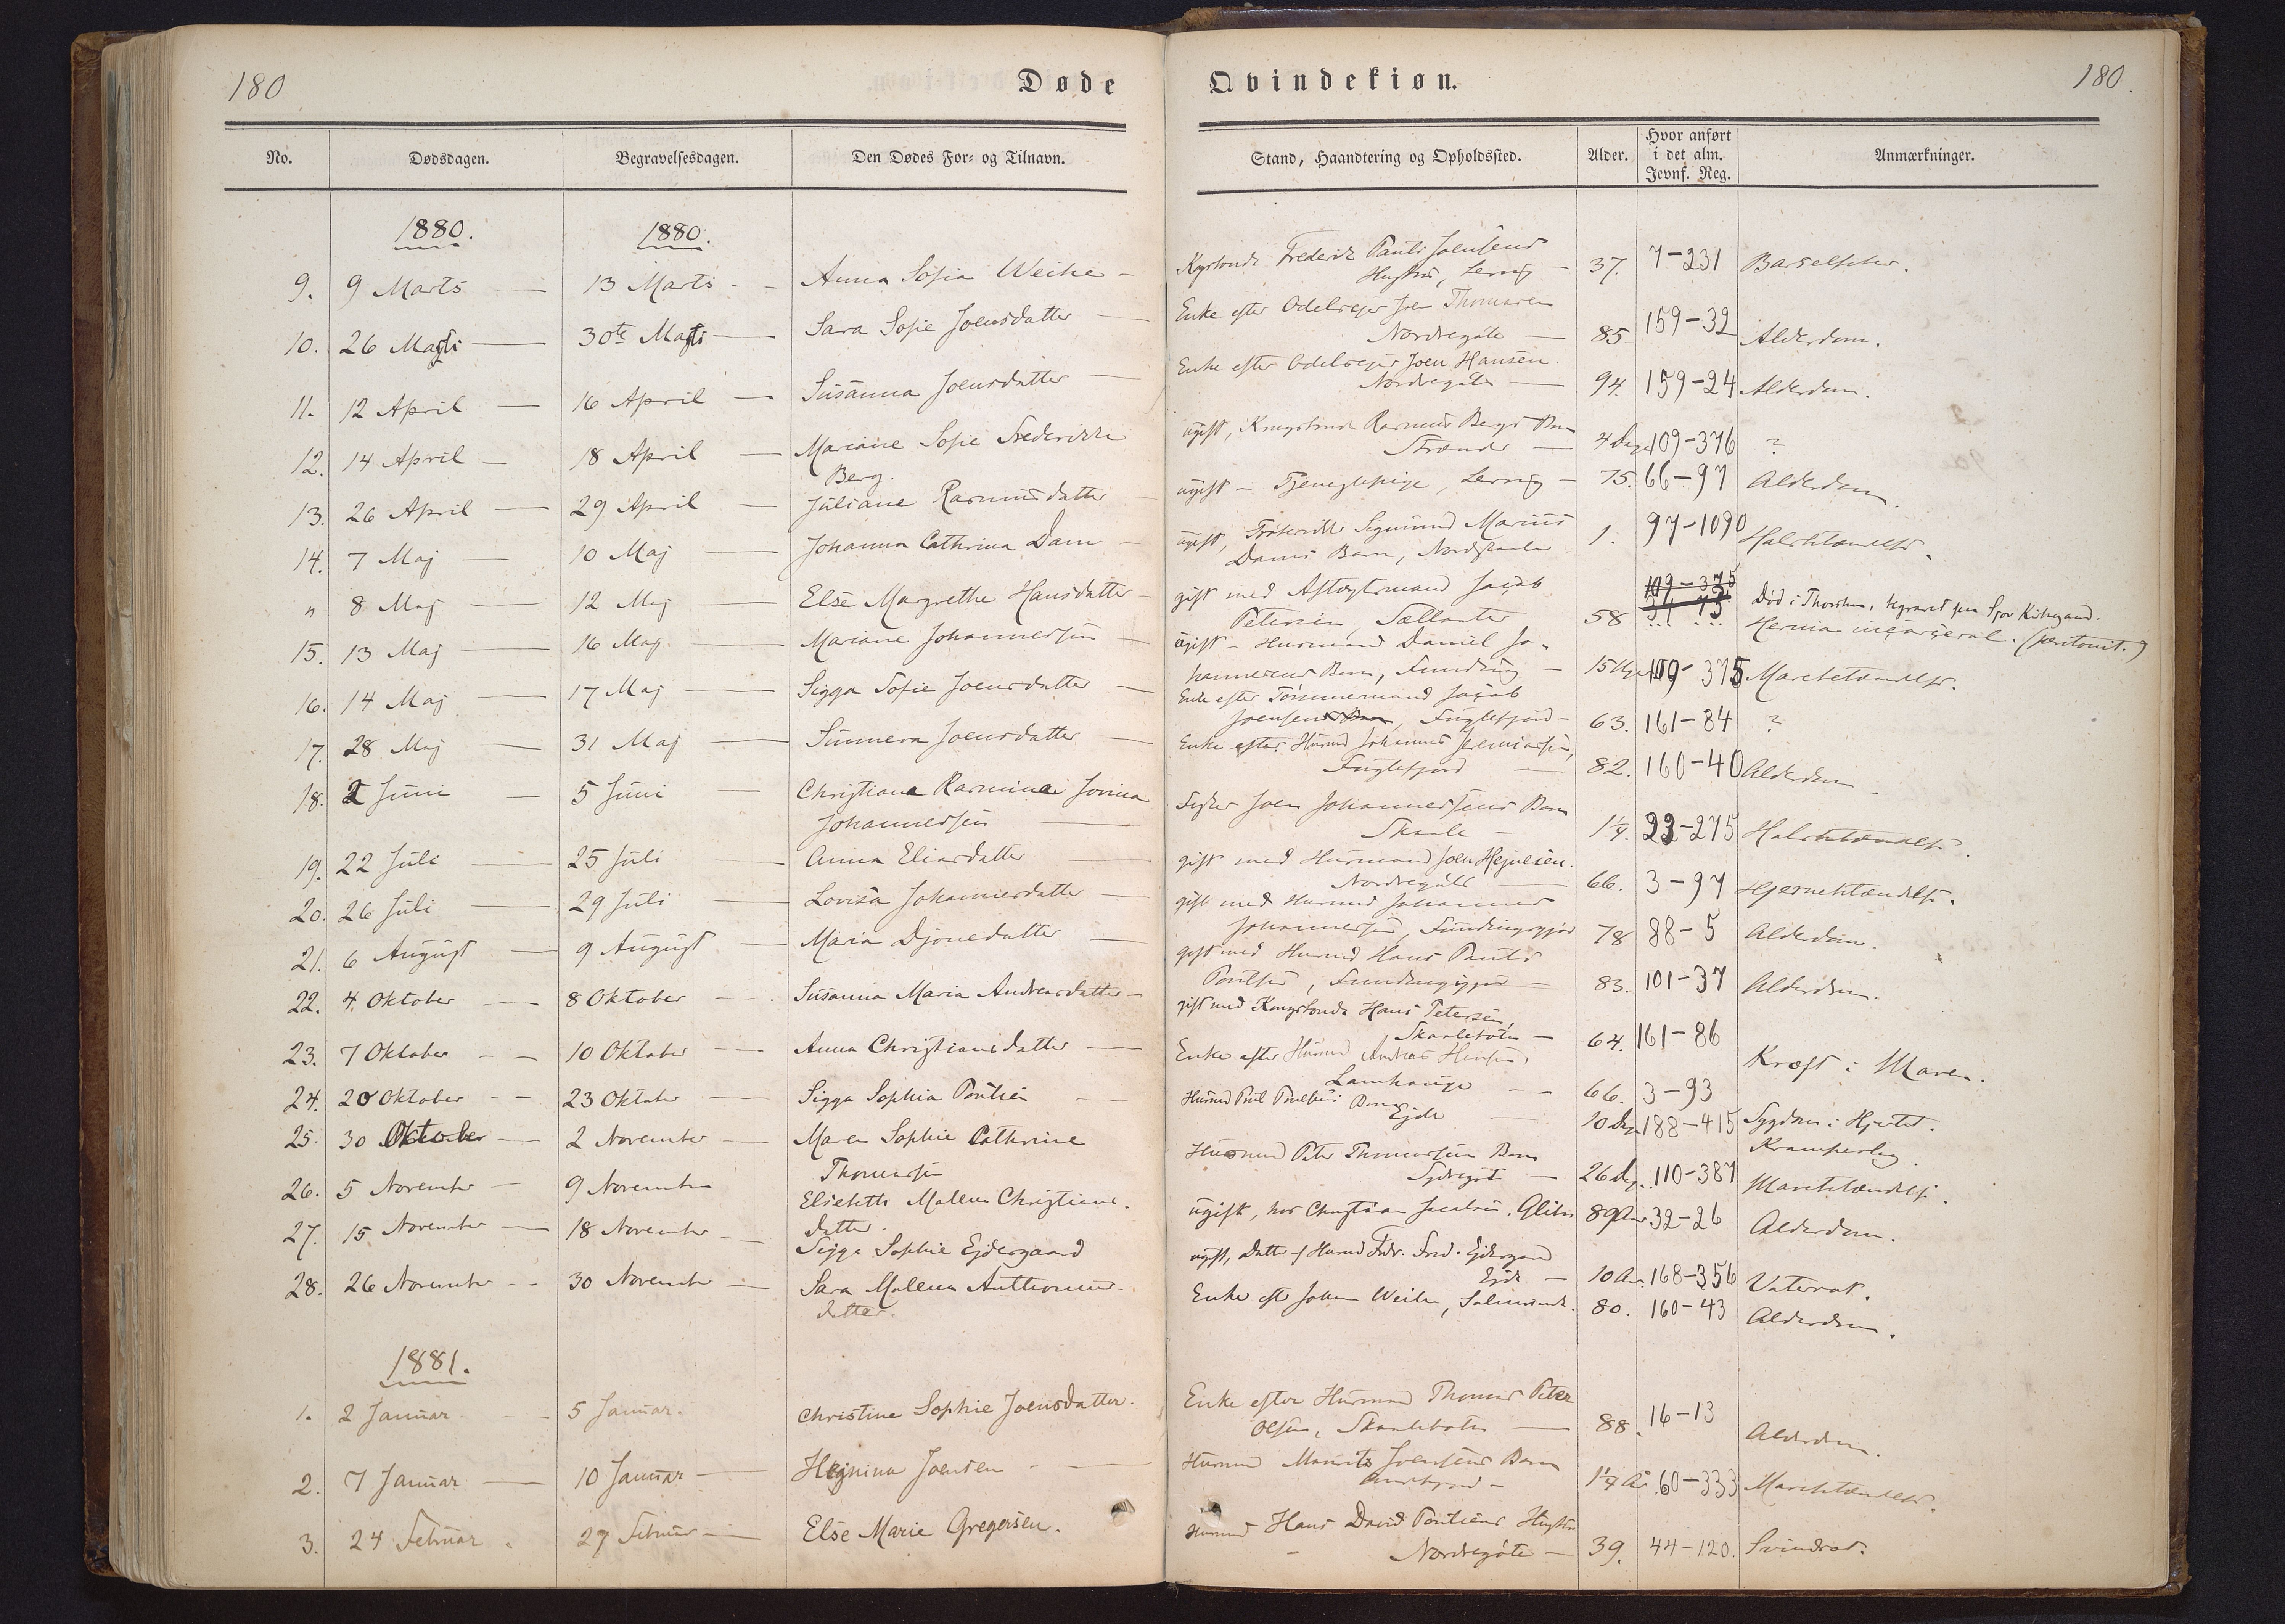 180
Døde
Qvindekiøn.
180.
No.
Dødsdagen.
Begravelsesdagen.
Den Dødes For- og Tilnavn.
Stand, Haandtering og Opholdssted.
Alder.
Hvor anført
i det alm.
Jevnf. Reg.
Anmærkninger.
1880.
1880.
9. 9 Marts 13 Marts Anna Sofia Weihe
Frederik Pauli Joensens
Hustru, 37. 7-231
10. 26 30te Sara Sofie Joensdatter
Enke efter Odelsejer Joen Thomasen
Nordregøte 85 159-32 Alderdom.
11. 12 April 16 April Susanna Joensdatter
Enke efter Odelsejer Joen Hansen.
Nordregøte 94. 159-24 Alderdom.
12. 14 April 18 April Mariane Sofie Frederikke
Berg.
ugift, Rasmus Bergs Barn
4 Dage 109-376 ?
13. 26 April 29 April Juliane Rasmusdatter
ugift - Tjenestepige, 75. 66-97 Alderdom
14. 7 Maj 10 Maj Johanna Cathrina Dam
ugift, Sigmund Marius
Dams Barn, 1. 97-1090 Halsbetændelse.
" 8 Maj 12 Maj Else Margrethe Hansdatter
gift med Aftægtsmand Jacob
Petersen, 58
109-375
Død i Thorshavn, begravet paa
Hernia incarceral. (peritonit.)
15. 13 Maj 16 Maj Mariane Johannessen
ugift - Husmand Daniel Jo-
hannesens Barn, Funding 109-375
16. 14 Maj 17 Maj Sigga Sofie Joensdatter
Enke efter Tømmermand Jacob
Joensen, Fuglefjord 63. 161-84 ?
17. 28 Maj 31 Maj Sunneva Joensdatter
Enke efter Husmd Johannes Jeremiassen,
Fuglefjord 82. 160-40 Alderdom
18. 2 Juni 5 Juni Christiana Rasmine Jovina
Johannessen
Joen Johannessens Barn
Skaale 1¼. 23-275 Halsbetændelse.
19. 22 Juli 25 Juli Anna Eliasdatter
gift med Husmand Joen Hejnesen.
Nordregøte 66. 3-97 Hjernebetændelse.
20. 26 Juli 29 Juli Lovisa Johannesdatter
gift med Husmd Johannes
Johannessen, Fundingsfjord 78 88-5 Alderdom.
21. 6 August 9 August Maria Djonedatter
gift med Husmd Hans Pauli
Poulsen, 83. 101-37 Alderdom.
22. 4. Oktober 8 Oktober Susanna Maria Andreasdatter
gift med Kongsbonde Hans Petersen,
Skaalebotn 64. 161-86
Kræft i Maven.
23. 7 Oktober 10 Oktober Anna Christiansdatter
Enke efter Husmd Andreas
Lamhauge 66. 3-93
Sygdom i Hjertet.
24. 20 Oktober 23 Oktober Sigga Sophia Poulsen
Husmd Poul Poulsens Barn
Ejde 10 Dage 188-415
25. 30 Oktober 2 November Maren Sophie Cathrine
Thomassen
Husmand Peter Thomassens Barn
26 Dg. 110-387
26. 5 November 9 November Elsebeth Malena Christians-
datter.
ugift, hos Christian Jacobsen, 89 Aar. 32-26 Alderdom.
27. 15 November 18 November Sigga Sophie Ejdesgaard
ugift, Datter af Husmd Fred. Ejdesgaard
Ejde 10 Aar. 168-356
28. 26 November 30 November Sara Malena Anthonius-
datter.
Enke efter Johan Weihe, 80. 160-43 Alderdom.
1881.
1. 2 Januar 5 Januar. Christine Sophie Joensdatter.
Enke efter Husmand Thomas Peter
Olsen, Skaalebotn 88. 16-13 Alderdom.
2. 7 Januar 10 Januar Hejnina Joensen
Husmd Joensens Barn
60-333
3. 24 Februar 27 Februar Else Marie Gregersen.
Husmd Hans David Poulsens Hustru
Nordregøte 39. 44-120. Svindsot.